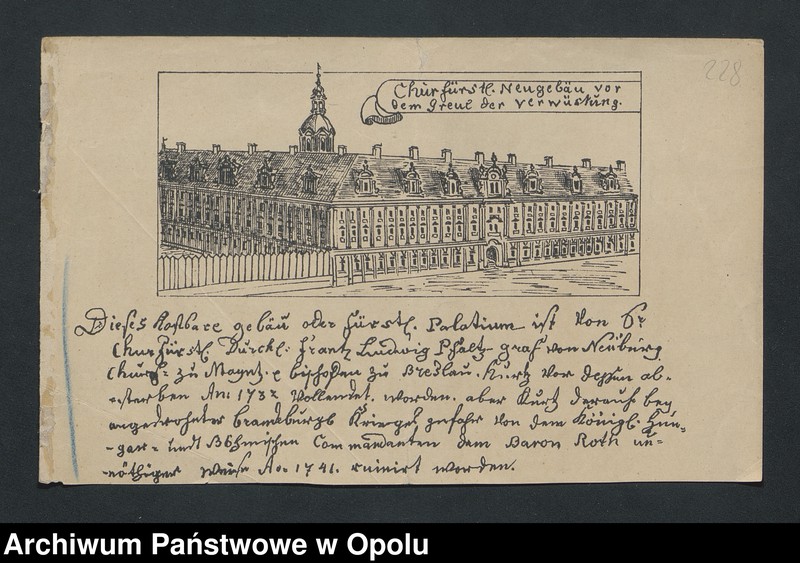 228
Churfürstl. Neugebäu vor
dem Greul der verwüstung.
Dieses Kostbare gebäu oder fürstl. Palatium ist Von Sr
Churfürstl. Durchl: Frantz Ludwig Pfaltz-graf von Neüburg
Churf= zu Mayntz. bischoffen zu Breslau. Kurtz vor dessen ab-
-sterben Ao: 1732 Vollendet. worden. aber Kurtz darauf bey
angedroheter brandeburgs Krieges gefahr Von dem Königl. Hun-
-gar= undt Böhmischen Commendanten dem Baron Roth un-
-nöthiger weise Ao. 1741. ruinirt worden.
Archiwum Państwowe w Opolu